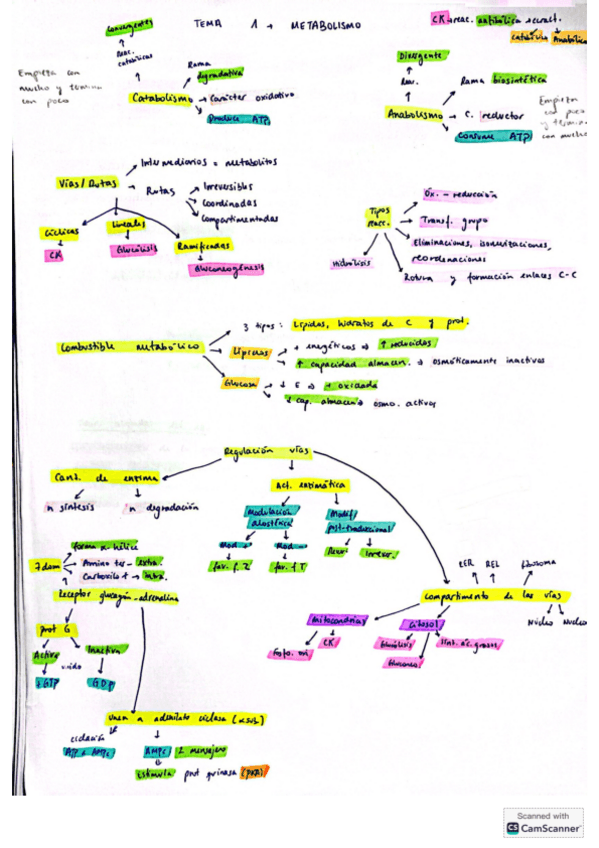 TEMA 1 → METABOLISMO
Convergentes
Reac.
catabólicas
Rama
degradativa
Empieza con
mucho y termina
con poco
Catabolismo → Carácter oxidativo
Produce ATP
CK → reac. anfibólica →
Catabólica
Anabólica
Divergente
Reac.
Rama biosintética
Anabolismo → C. reductor
Consume ATP
Empieza
con poco
y termina
con mucho
Intermediarios = metabolitos
Vías/Rutas → Rutas
Irreversibles
Coordinadas
Compartimentadas
Cíclicas
Lineales
Ramificadas
CK
Glucólisis
Gluconeogénesis
Tipos
reacc.
Ox. - reducción
Transf. grupo
Eliminaciones, isomerizaciones,
reordenaciones
Rotura y formación enlaces C-C
Hidrólisis
Combustible metabólico
3 tipos: Lípidos, hidratos de C y prot.
Lípidos
+ energéticos → ↑ reducidos
↑ capacidad almacen. → osmóticamente inactivos
Glucosa → ↓ E → + oxidada
↓ cap. almacen → osmo. activos
Regulación vías
Cant. de enzima
n síntesis
n degradación
Act. enzimática
Modulación
alostérica
Modif.
post-traduccional
Mod +
Mod -
fav. f. R
fav. f T
Rever.
Irrever.
7 dom
forma α-hélice
Amino ter → extra.
Carboxilo t → intra.
Receptor glucagón-adrenalina
prot G
Activa
Inactiva
unido
+ GTP
GDP
Unen a adenilato ciclasa
ciclación
AMPc 2 mensajero
Estimula prot quinasa (PKA)
Compartimento de las vías
RER
REL
Núcleo
Mitocondrias
Citosol
CK
Glucólisis
Sint. ác. grasos
Glucone.
Scanned with
CS CamScanner